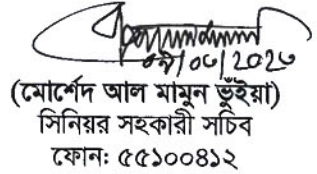 (মোর্শেদ আল মামুন ভুঁইয়া)
সিনিয়র সহকারী সচিব
ফোনঃ ৫৫১০০৪১২